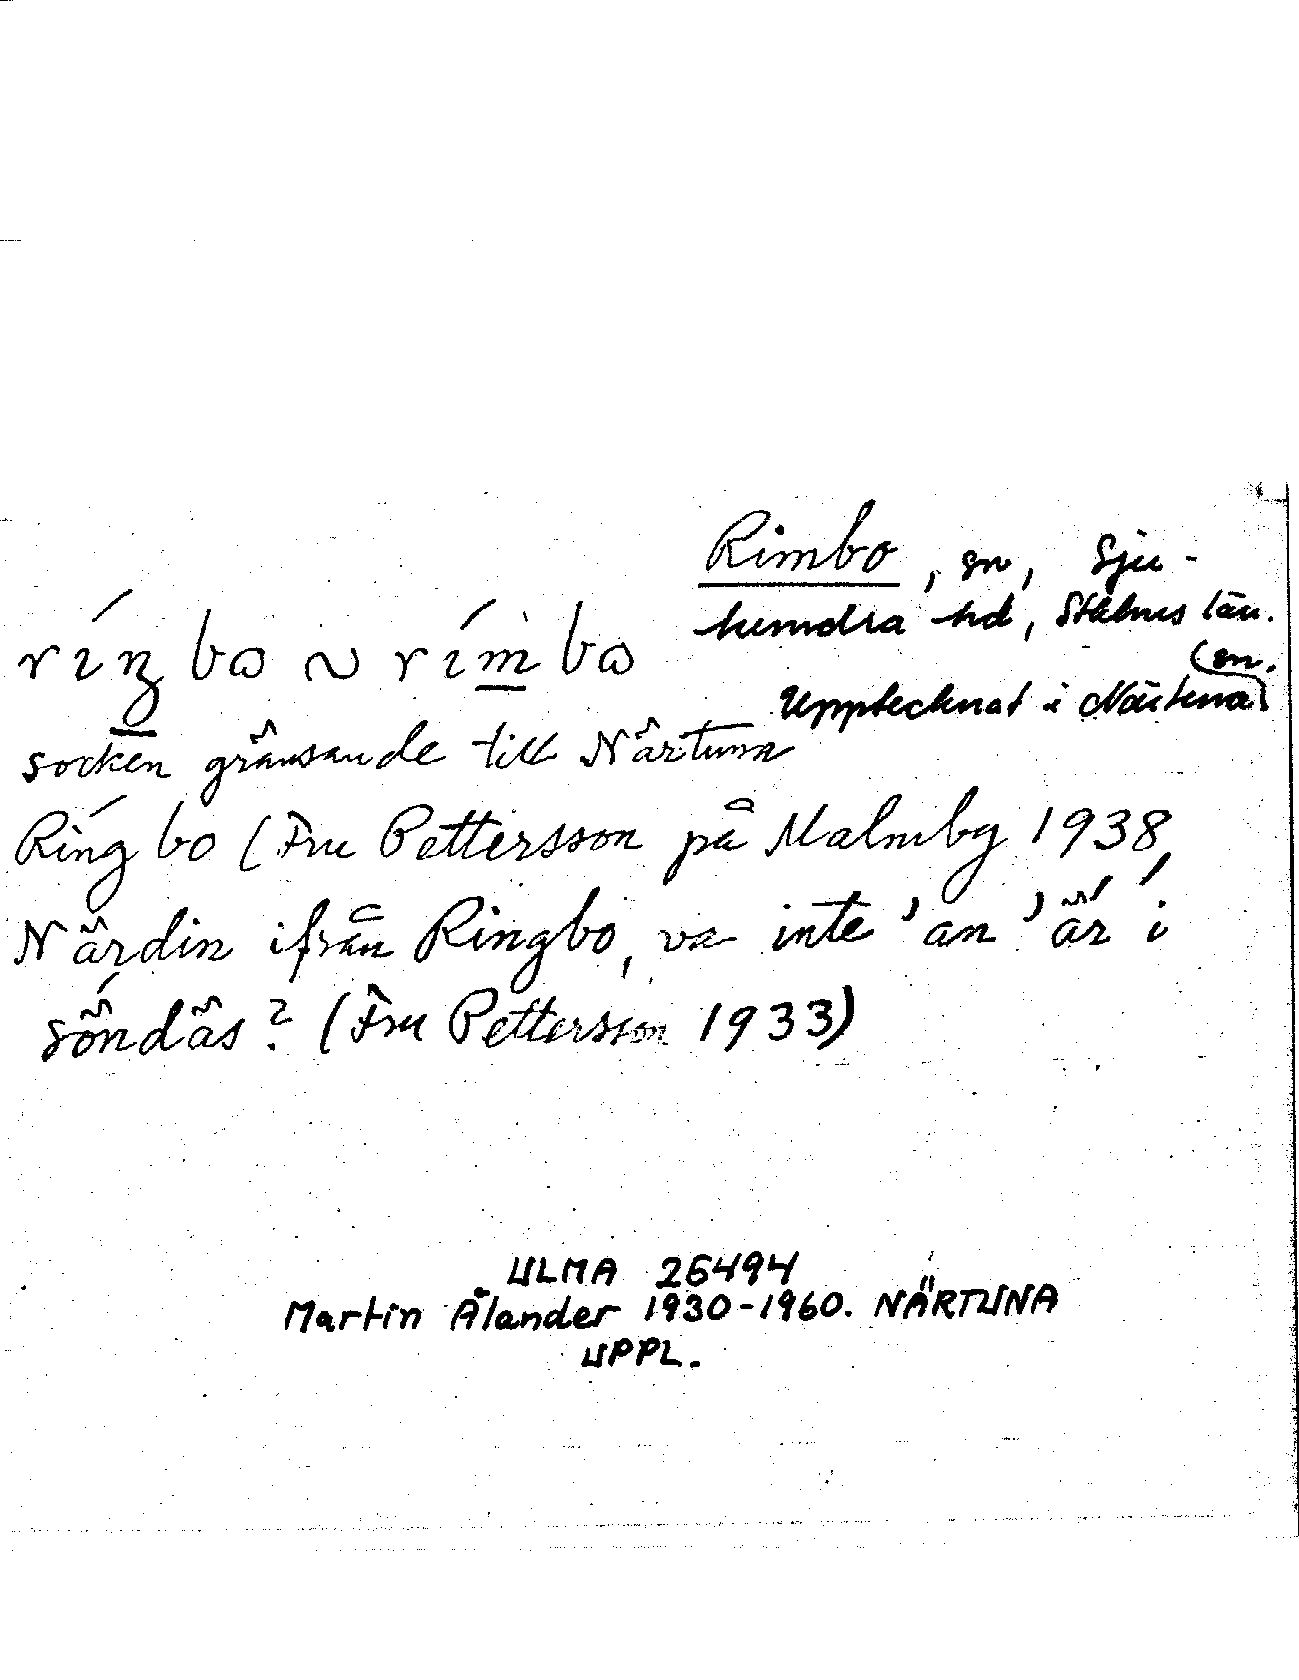 Rimbo, sn, Sju-
hundra hd, Sthlms län.
Upptecknat i Närtuna sn.
ríŋbo ~ rímbo
socken gränsande till Närtuna
Ríngbo (Fru Pettersson på Malmby 1938,
Närdin ifrån Ringbo, va inte 'an 'är i
söndäs? (Fru Pettersson 1933)
ULMA 26494
Martin Ålander 1930-1960. NÄRTUNA
UPPL.